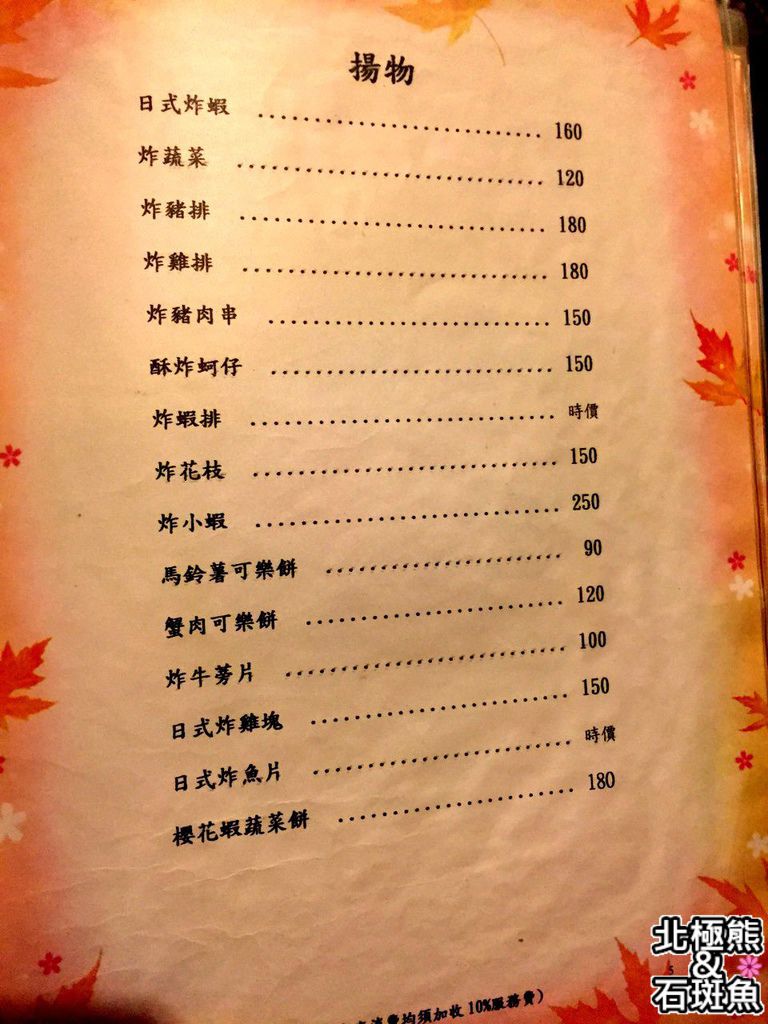 揚物
日式炸蝦 160
炸蔬菜 120
炸豬排 180
炸雞排 180
炸豬肉串 150
酥炸蚵仔 150
炸蝦排 時價
炸花枝 150
炸小蝦 250
馬鈴薯可樂餅 90
蟹肉可樂餅 120
炸牛蒡片 100
日式炸雞塊 150
日式炸魚片 時價
櫻花蝦蔬菜餅 180
5
消費均須加收10%服務費）
北極熊
&
石斑魚